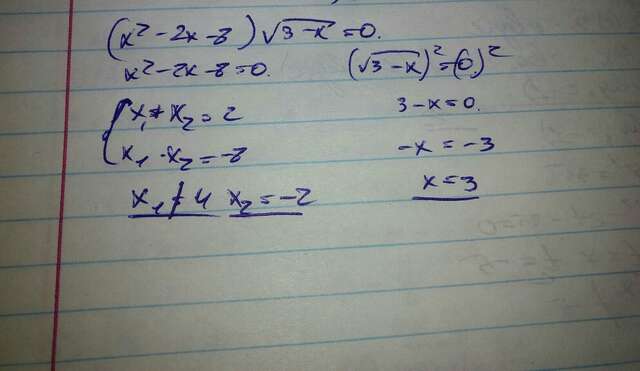 (x² - 2x - 8) √3-x = 0.
x² - 2x - 8 = 0. (√3-x)² = (0)²
{ x₁ + x₂ = 2 3 - x = 0.
x₁ · x₂ = -8 -x = -3
x₁ = 4 x₂ = -2 x = 3